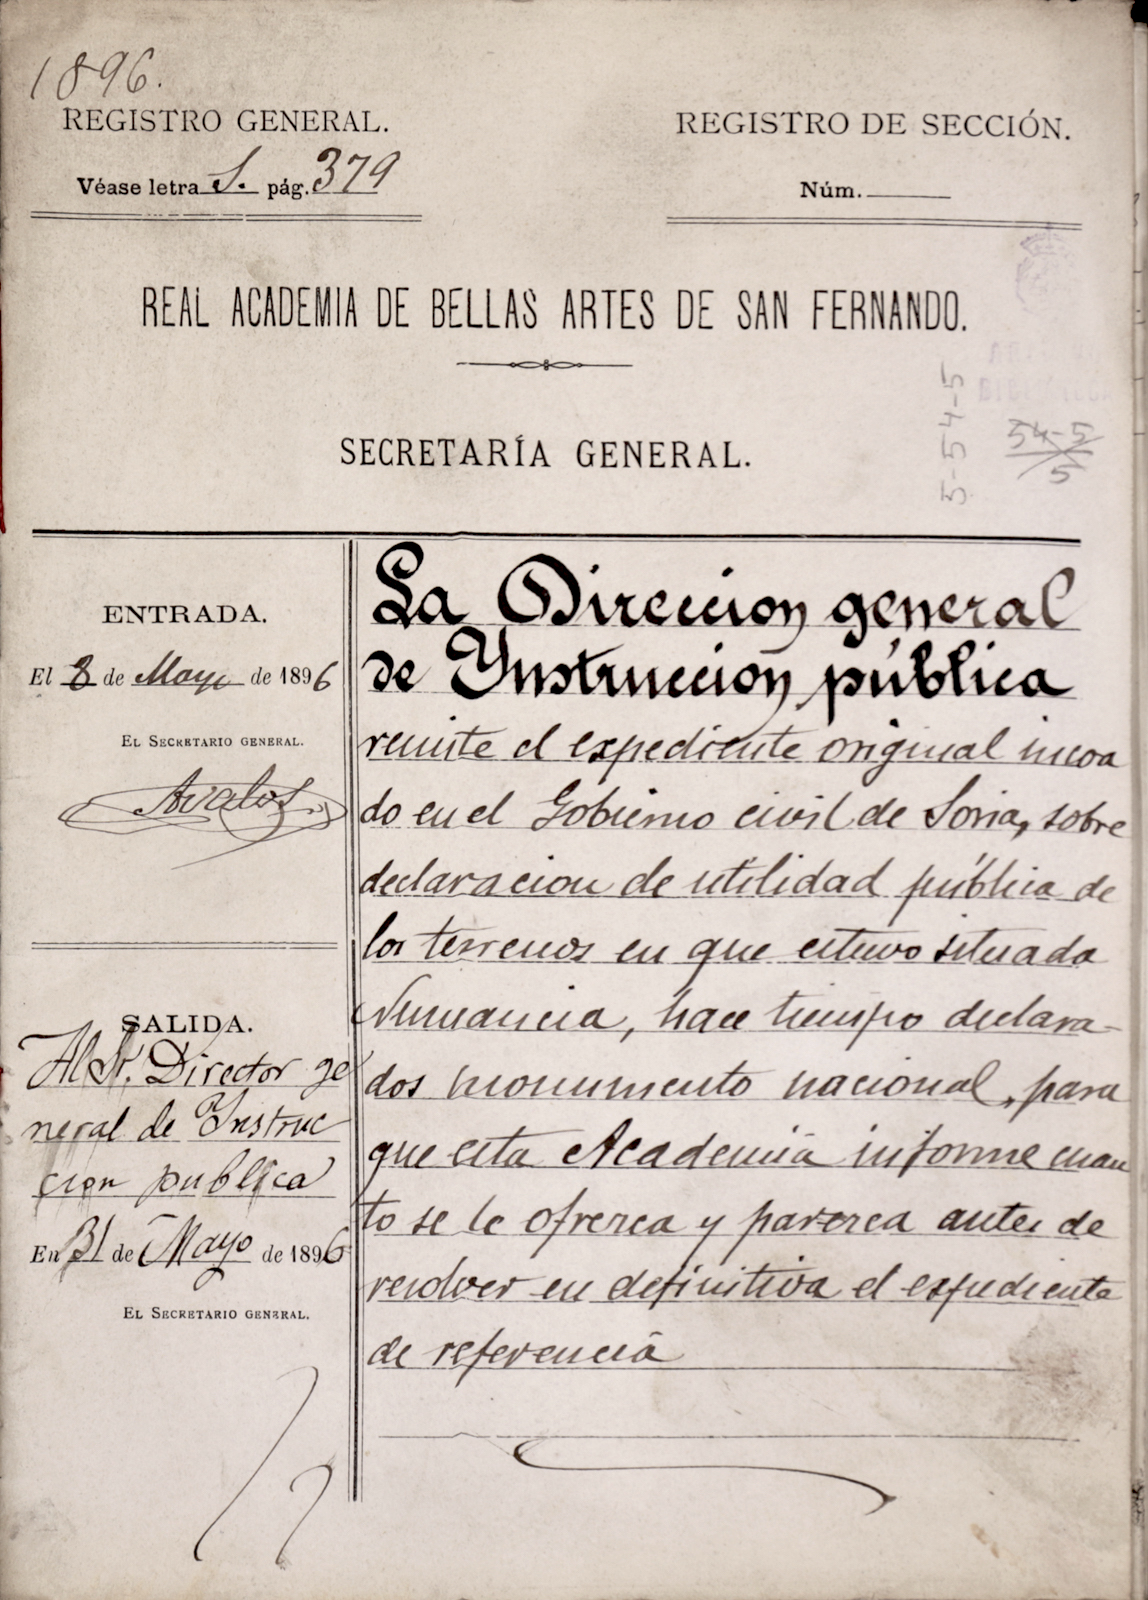 1896.
REGISTRO GENERAL.
Véase letra S. pág. 379
REGISTRO DE SECCIÓN.
Núm.
REAL ACADEMIA DE BELLAS ARTES DE SAN FERNANDO.
5-54-5
54-5
5
SECRETARÍA GENERAL.
ENTRADA.
El 8 de Mayo de 1896
EL SECRETARIO GENERAL.
Avalos
SALIDA.
Al Sr. Director ge
neral de Instruc
cion publica
En 31 de Mayo de 1896
EL SECRETARIO GENERAL.
La Direccion general
de Ynstruccion pública
remite el expediente original incoa
do en el Gobierno civil de Soria, sobre
declaracion de utilidad pública de
los terrenos en que estuvo situada
Numancia, hace tiempo declara-
dos monumento nacional, para
que esta Academia informe cuan
to se le ofrezca y parezca antes de
resolver en definitiva el expediente
de referencia